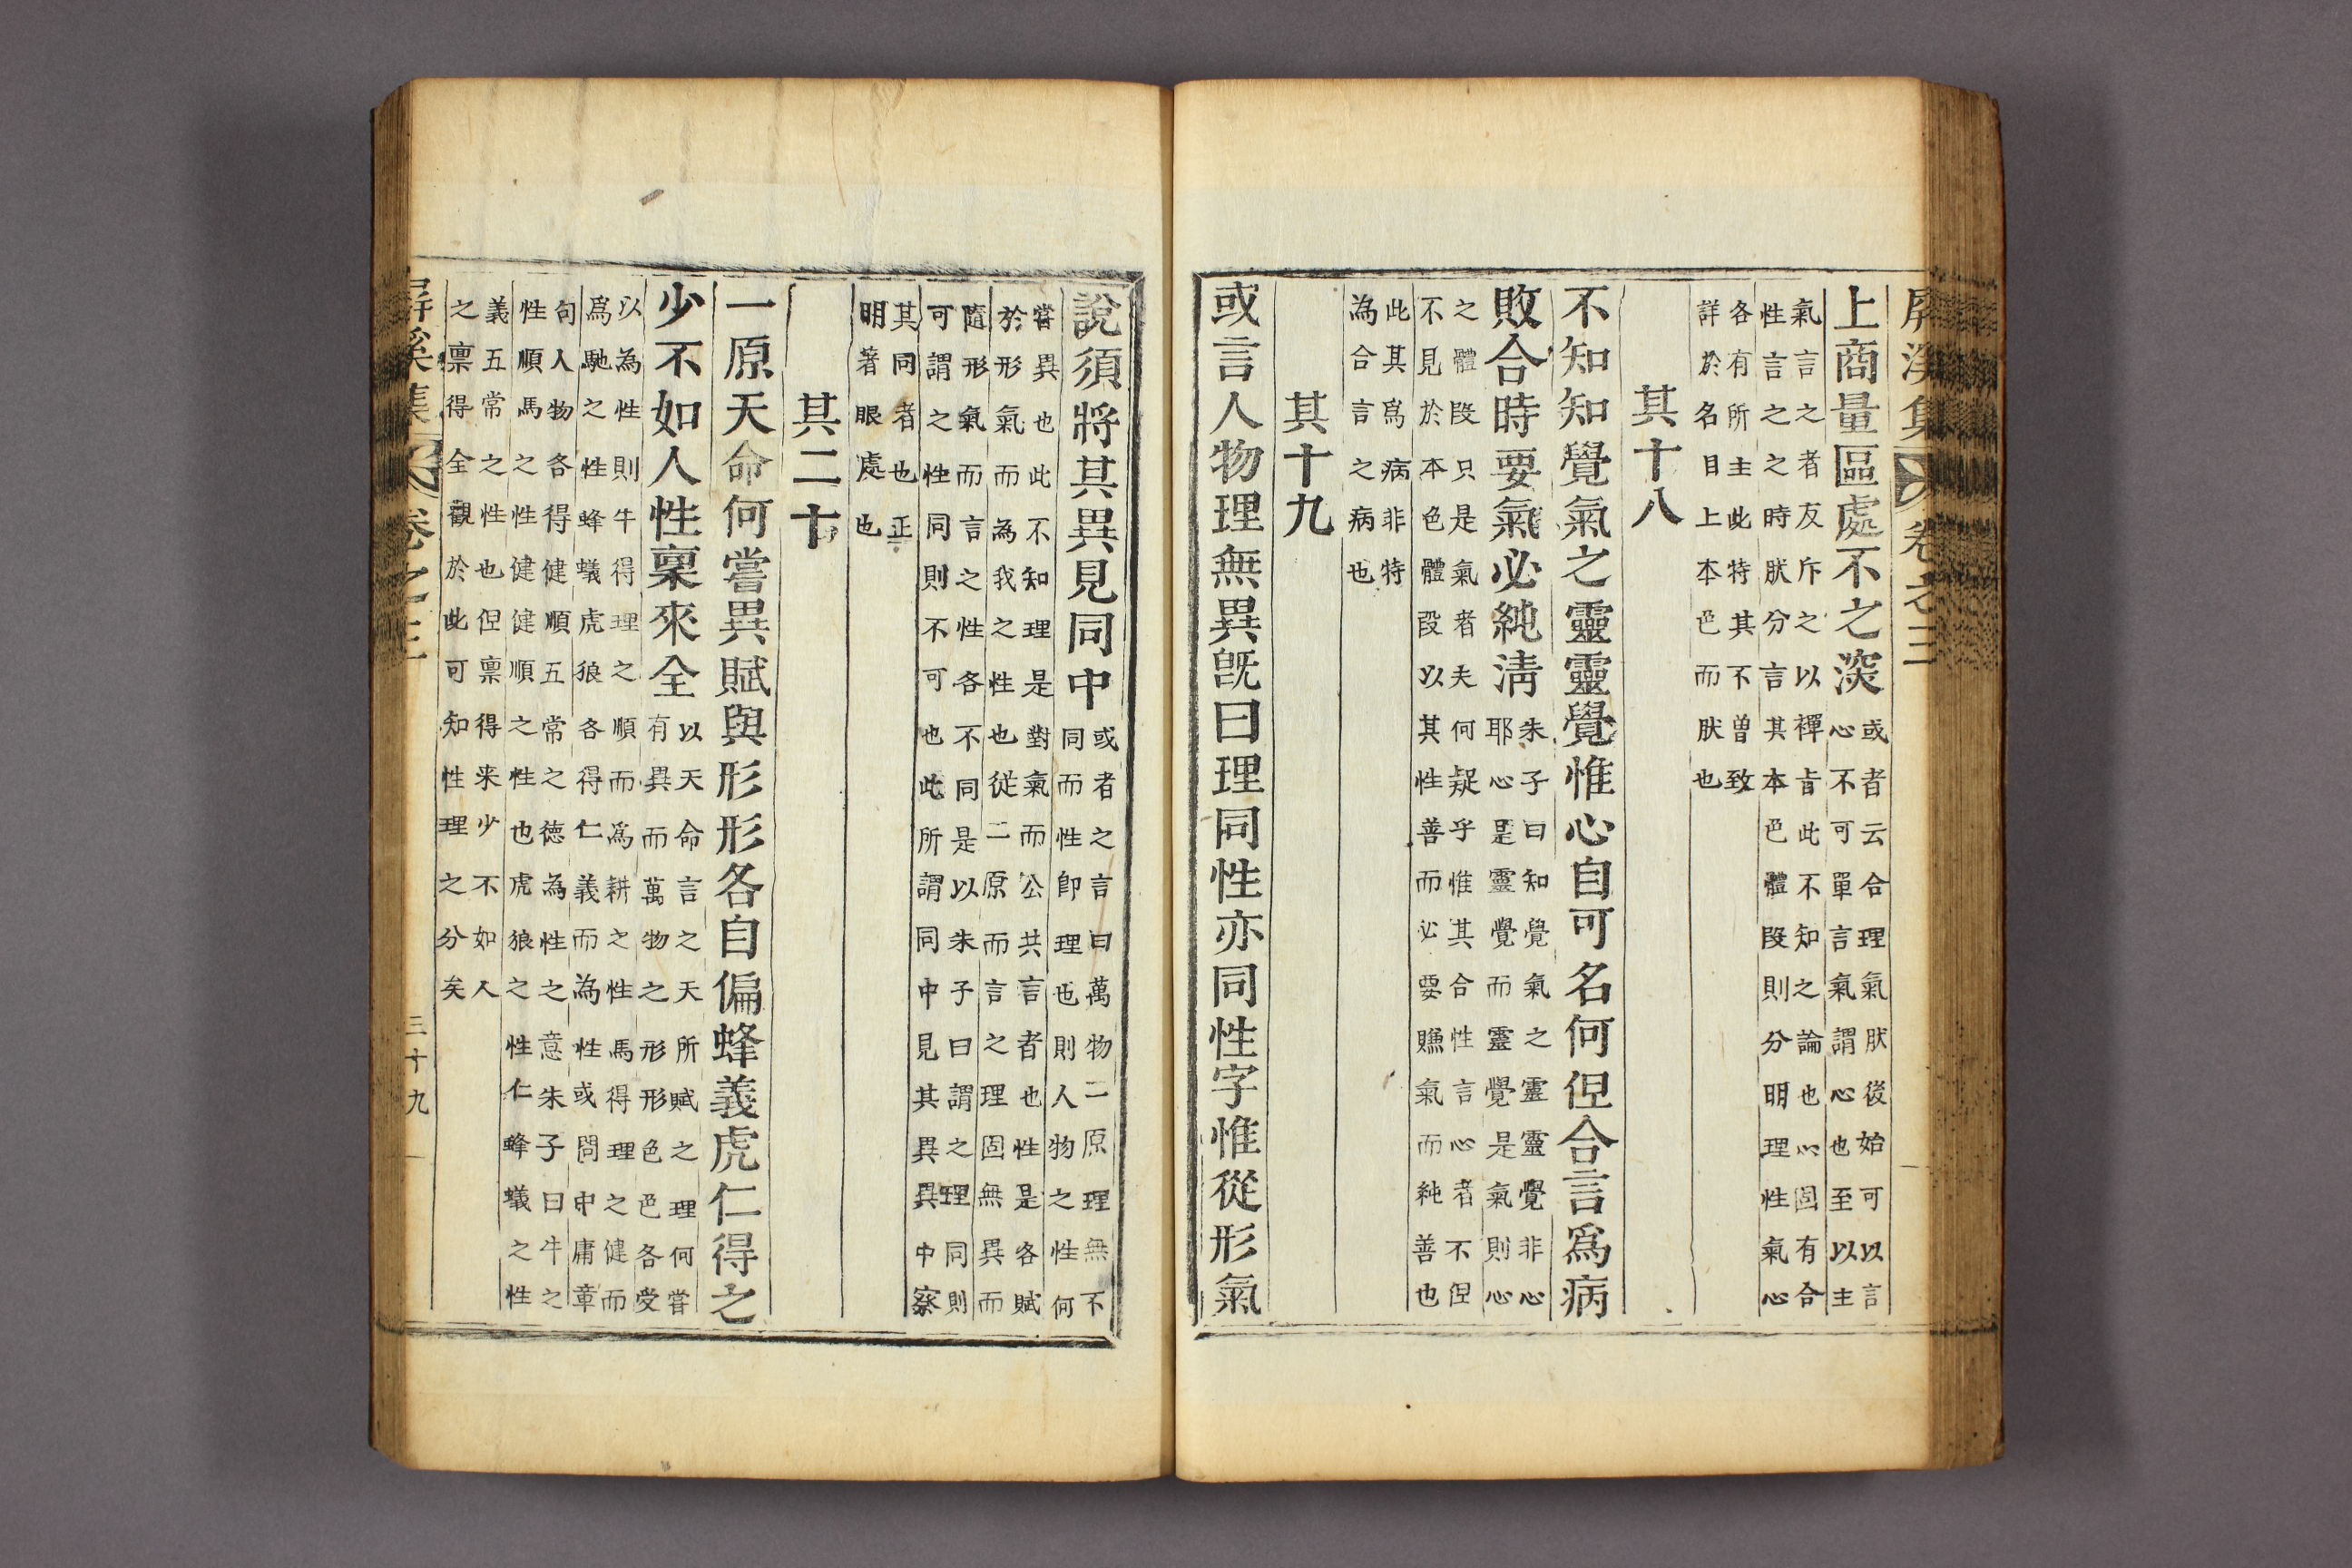 屏溪集 卷之三
上商量區處不之深
或者云合理氣肰後始可以言
心不可單言氣謂心也至以主
氣言之者友斥之以禪旨此不知之論也心固有合
性言之之時肰分言其本色體段則分明理性氣心
各有所主此特其不曾致
詳於名目上本色而肰也
其十八
不知知覺氣之靈靈覺惟心自可名何但合言爲病
敗合時要氣必純淸
朱子曰知覺氣之靈靈覺非心
耶心是靈覺而靈覺是氣則心
之體段只是氣者夫何疑乎惟其合性言心者不但
不見於本色體段以其性善而必要賺氣而純善也
此其爲病非特
為合言之病也
其十九
或言人物理無異旣曰理同性亦同性字惟從形氣
說須將其異見同中
或者之言曰萬物一原理無不
同而性卽理也則人物之性何
嘗異也此不知理是對氣而公共言者也性是各賦
於形氣而為我之性也從一原而言之理固無異而
隨形氣而言之性各不同是以朱子曰謂之理同則
可謂之性同則不可也此所謂同中見其異異中察
其同者也正
明著眼處也
其二十
一原天命何嘗異賦與形形各自偏蜂義虎仁得之
少不如人性稟來全
以天命言之天所賦之理何嘗
有異而萬物之形形色色各受
以為性則牛得理之順而爲耕之性馬得理之健而
爲馳之性蜂蟻虎狼各得仁義而為性或問中庸章
句人物各得健順五常之德為性之意朱子曰牛之
性順馬之性健健順之性也虎狼之性仁蜂蟻之性
義五常之性也但稟得來少不如人
之稟得全觀於此可知性理之分矣
屏溪集 卷之三 三十九